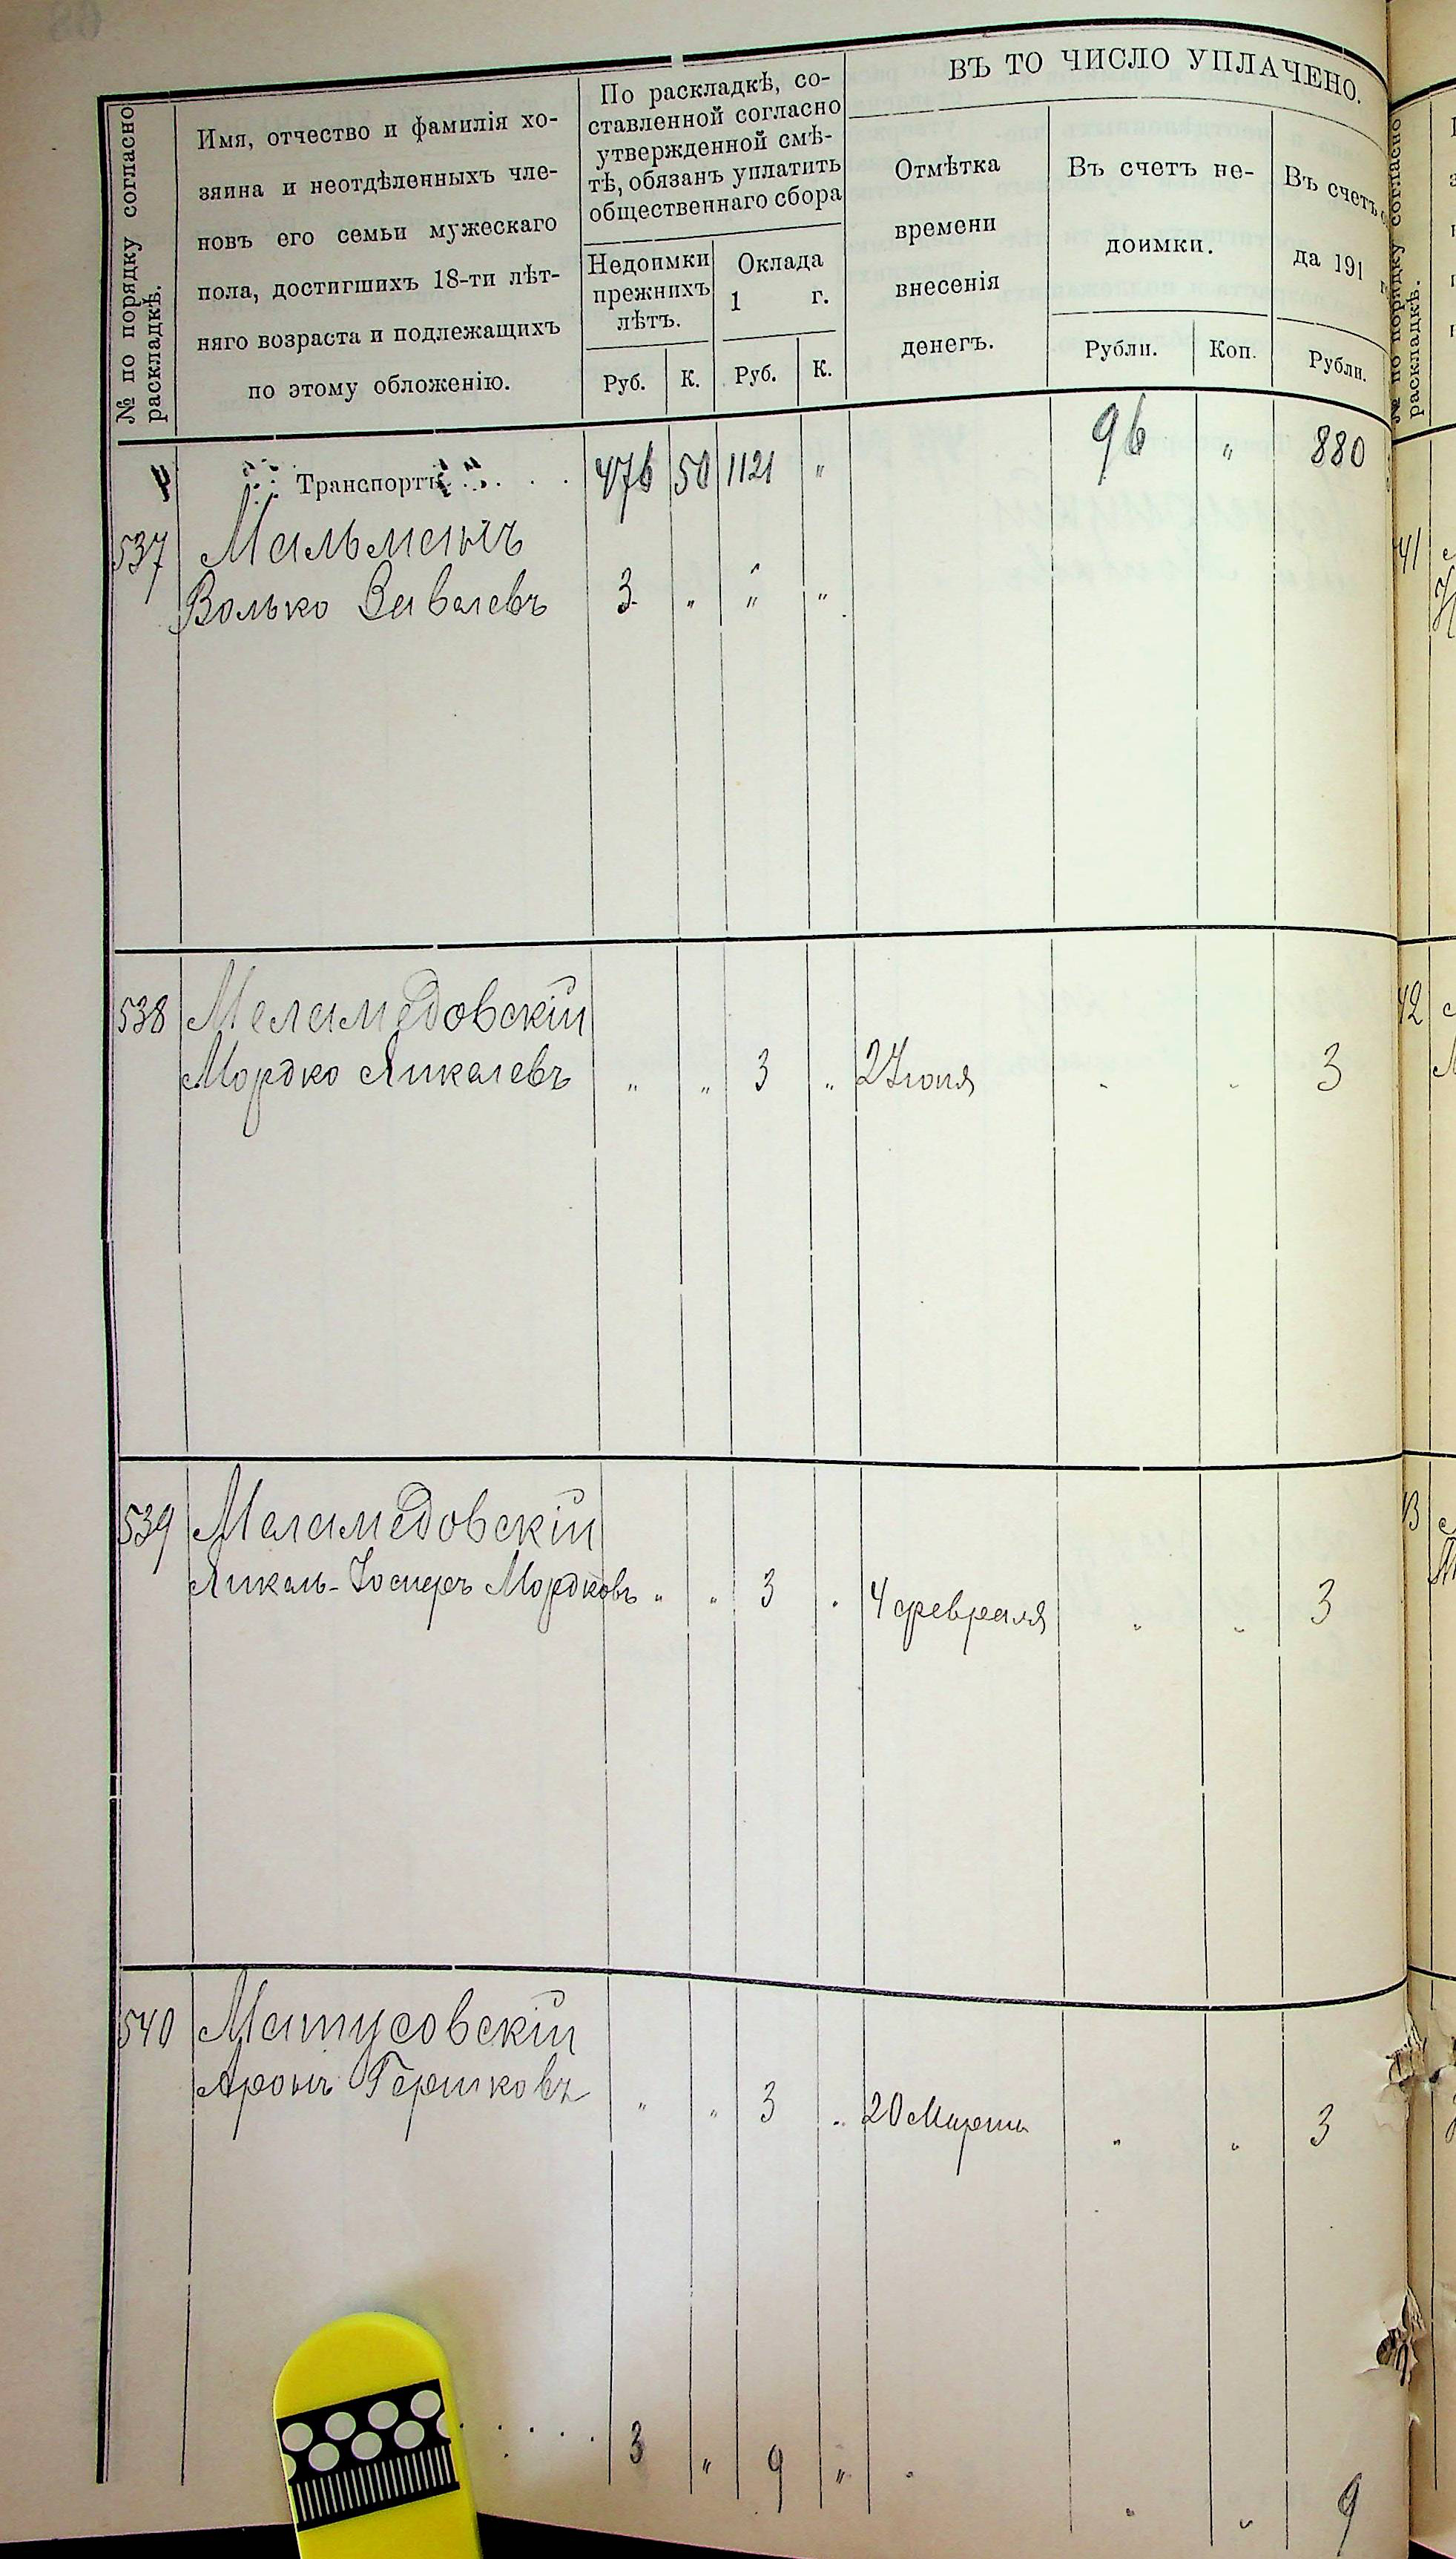 № по порядку согласно
раскладкѣ.
Имя, отчество и фамилія хо-
зяина и неотдѣленныхъ чле-
новъ его семьи мужескаго
пола, достигшихъ 18-ти лѣт-
няго возраста и подлежащихъ
по этому обложенію.
По раскладкѣ, со-
ставленной согласно
утвержденной смѣ-
тѣ, обязанъ уплатить
общественнаго сбора
Недоимки
прежнихъ
лѣтъ.
Руб. К.
Оклада
1 г.
Руб. К.
ВЪ ТО ЧИСЛО УПЛАЧЕНО.
Отмѣтка
времени
внесенія
денегъ.
Въ счетъ не-
доимки.
Рубли. Коп.
Въ счетъ
да 191
Рубли.
Транспортъ 476 50 1121 " 96 " 880
537 Мальманъ
Волько 3 " " "
538 Меламедовскій
Мордко Янкелевъ " " 3 " 2 Іюня " " 3
539 Меламедовскій
Янкель-Іосифъ Мордковъ " " 3 " 4 февраля " " 3
540 Матусовскій
Аронъ Гершковъ " " 3 " 20 Марта " " 3
3 " 9 " " " 9
№ по порядку согласно
раскладкѣ.
41
42
43